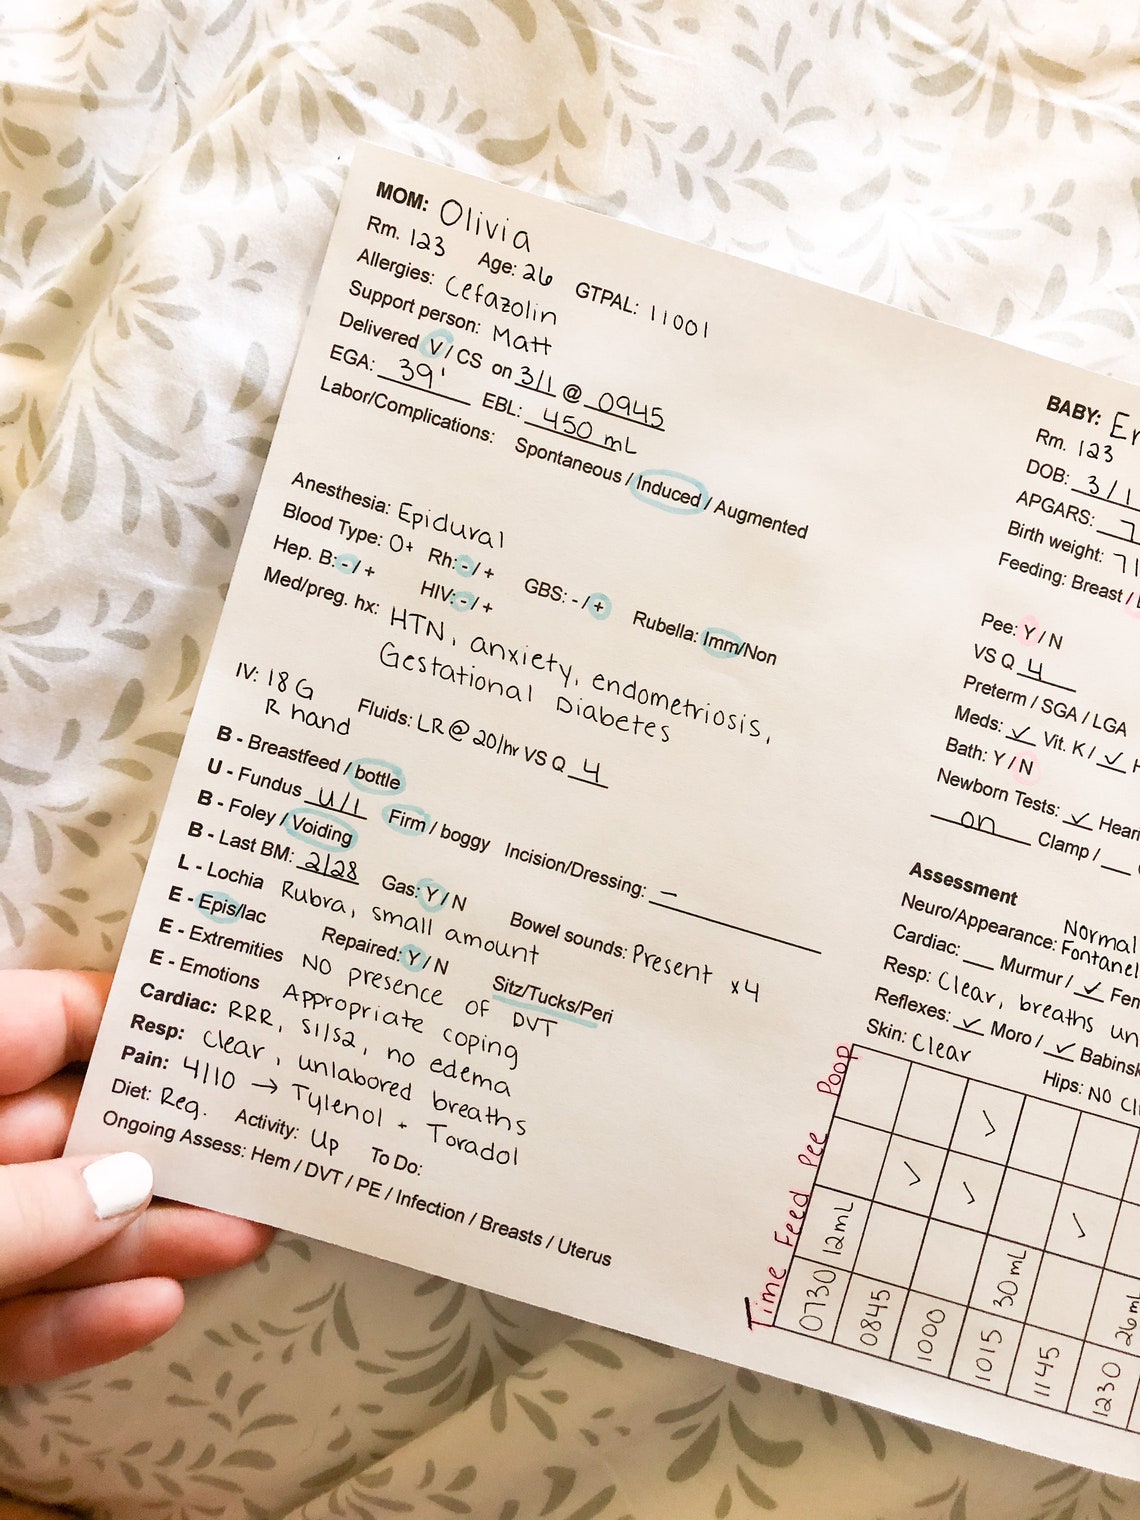 MOM: Olivia
Rm. 123 Age: 26 GTPAL: 11001
Allergies: Cefazolin
Support person: Matt
Delivered V/CS on 3/1 @ 0945
EGA: 39' EBL: 450 mL
Labor/Complications: Spontaneous / Induced / Augmented
Anesthesia: Epidural
Blood Type: O+ Rh: - / + GBS: - / + Rubella: Imm/Non
Hep. B: - / + HIV: - / +
Med/preg. hx: HTN, anxiety, endometriosis,
Gestational Diabetes
IV: 18 G Fluids: LR @ 20/hr VS Q 4
R hand
B - Breastfeed / bottle
U - Fundus U/1 Firm / boggy Incision/Dressing: -
B - Foley / Voiding
B - Last BM: 2/28 Gas: Y / N Bowel sounds: Present x4
L - Lochia Rubra, small amount
E - Epis/lac Repaired: Y / N Sitz/Tucks/Peri
E - Extremities NO presence of DVT
E - Emotions Appropriate coping
Cardiac: RRR, S1/S2, no edema
Resp: clear, unlabored breaths
Pain: 4/10 → Tylenol + Toradol
Diet: Reg. Activity: Up To Do:
Ongoing Assess: Hem / DVT / PE / Infection / Breasts / Uterus
BABY:
Rm. 123
DOB: 3/1
APGARS:
Birth weight:
Feeding: Breast /
Pee: Y / N
VS Q 4
Preterm / SGA / LGA
Meds: ✓ Vit. K / ✓
Bath: Y / N
Newborn Tests: ✓
on Clamp /
Assessment
Neuro/Appearance: Normal
Cardiac: Murmur / ✓
Resp: Clear, breaths
Reflexes: ✓ Moro / ✓
Skin: Clear
Hips: NO
Time Feed Pee Poop
0730 12mL
0845 ✓
1000 ✓ ✓
1015 30 mL
1145 ✓
1230 26mL